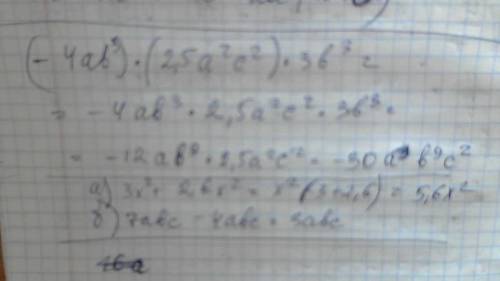 (-4ab³)·(2,5a²c²)·3b³ =
= -4ab³·2,5a²c²·3b³ =
= -12ab⁹·2,5a²c² = -30a³b⁹c²
а) 3x² + 2,6x² = x²(3+2,6) = 5,6x²
б) 7abc - 4abc = 3abc